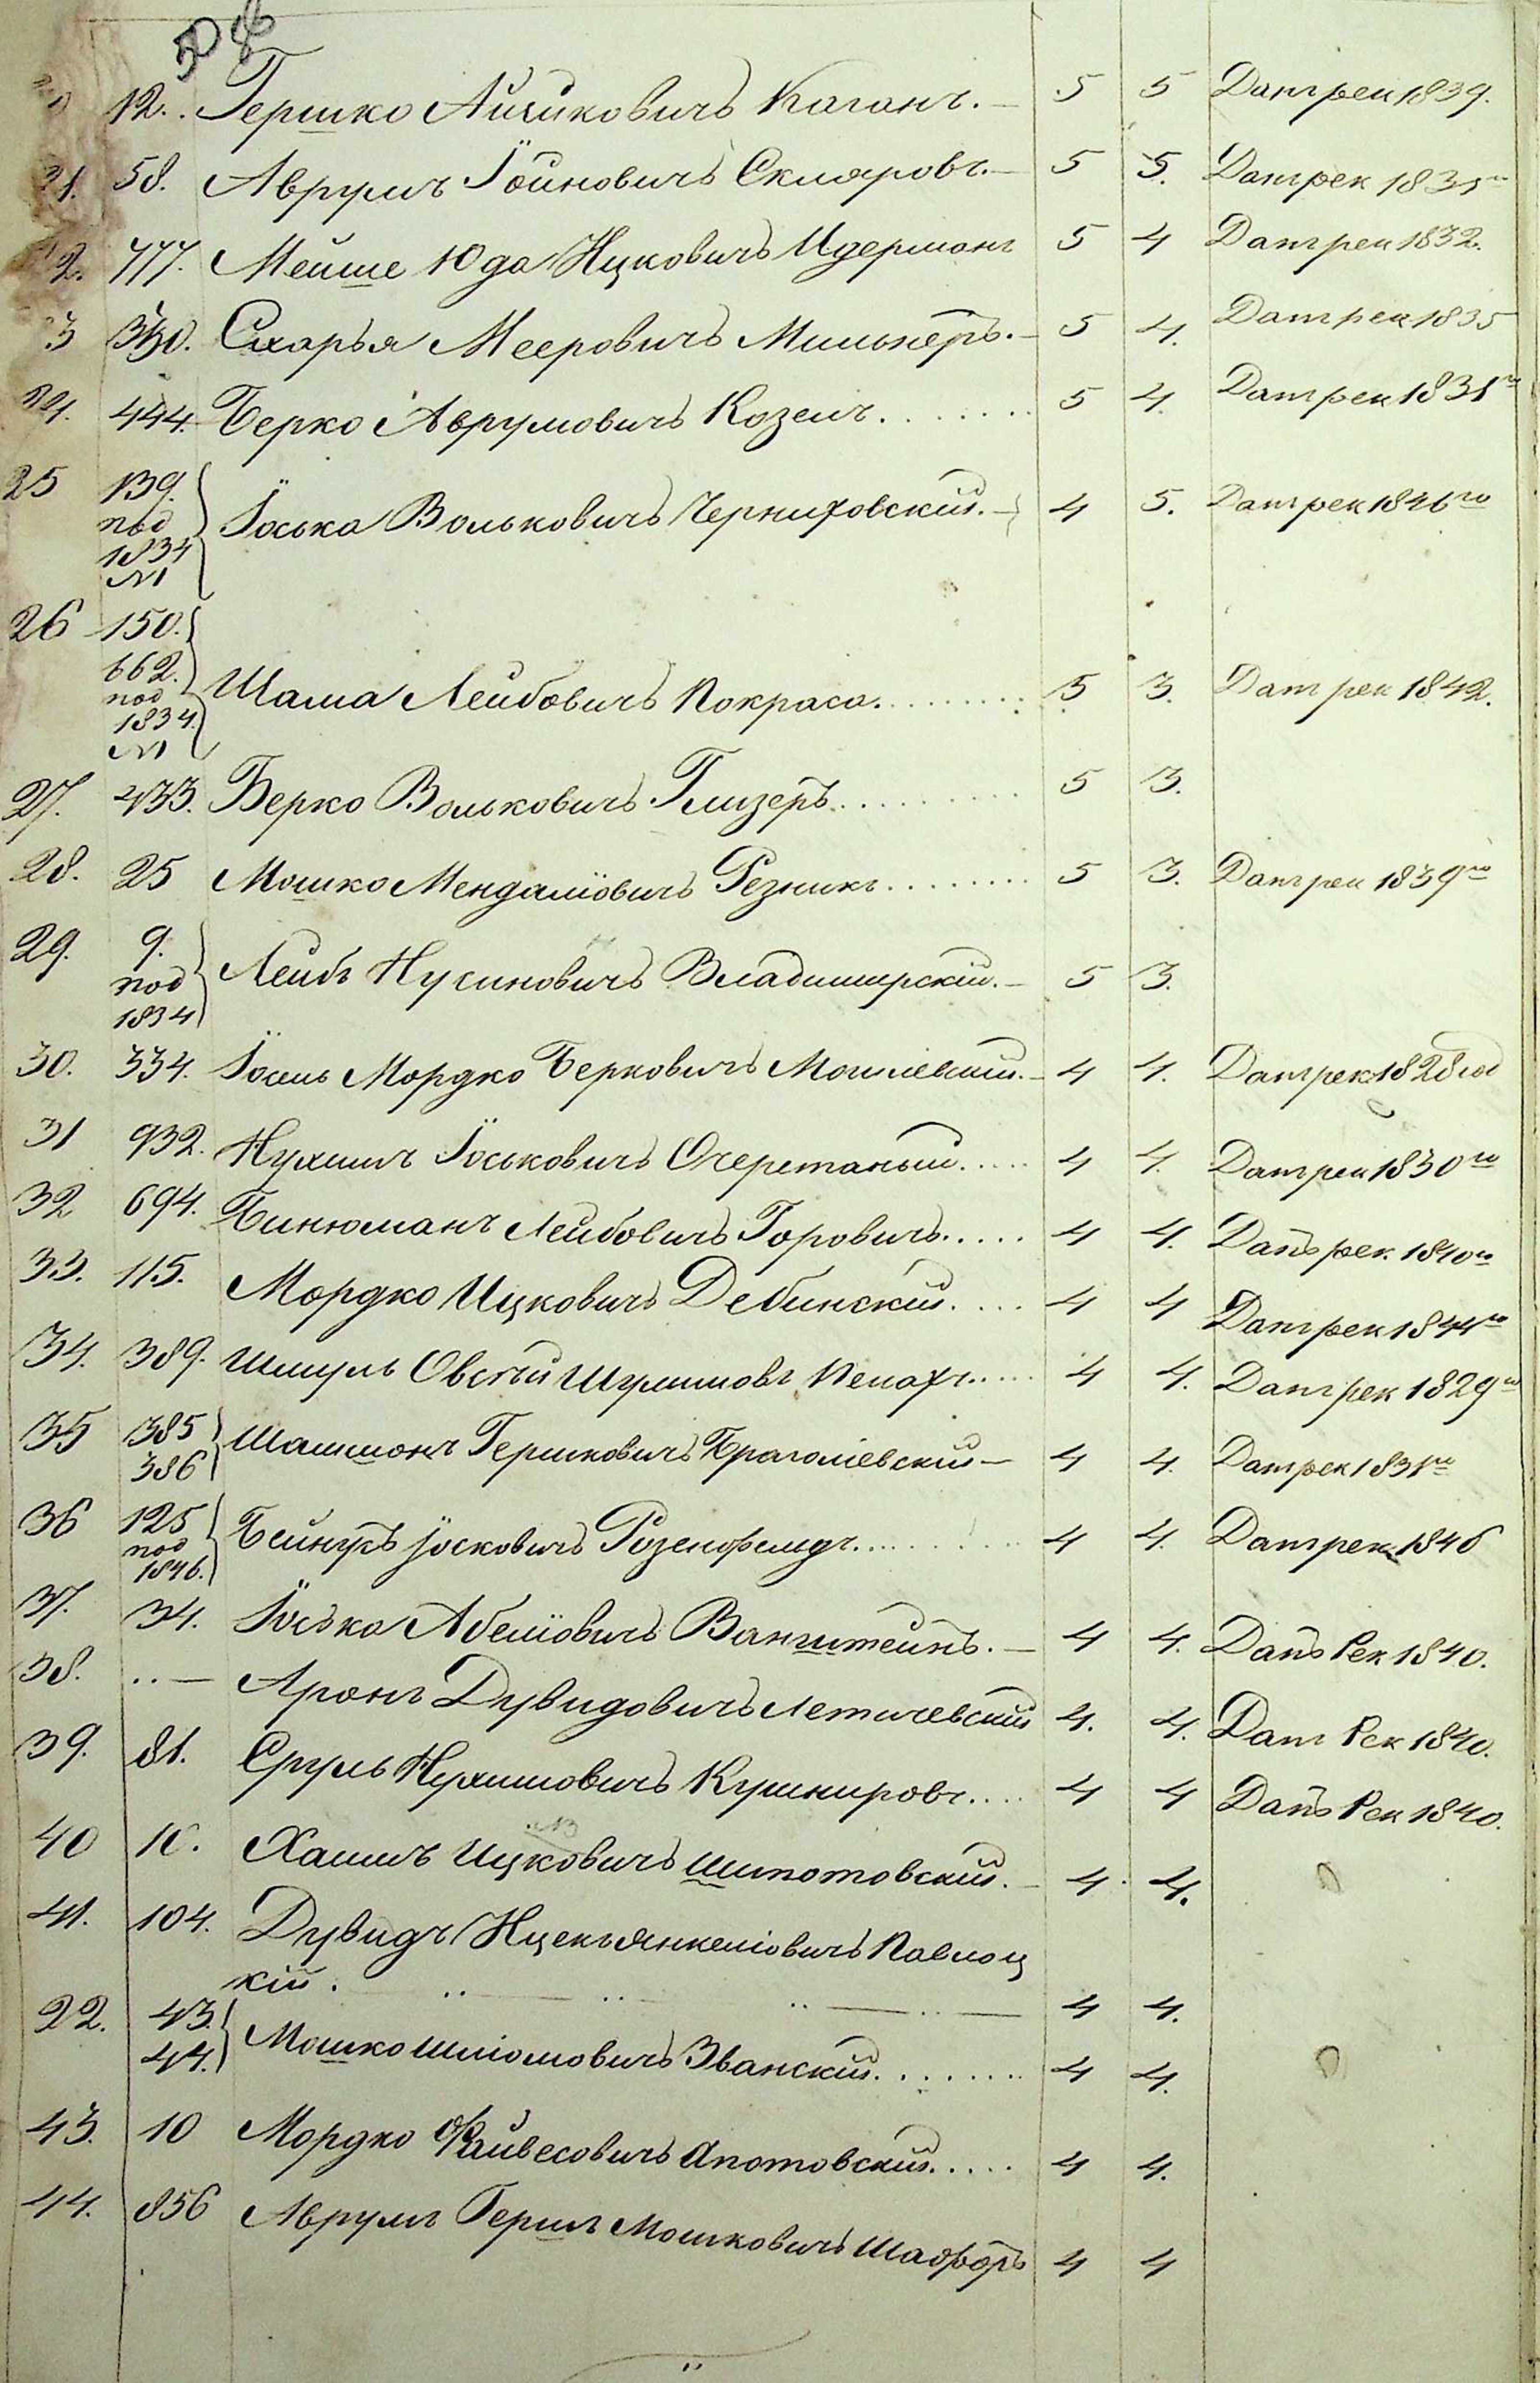 12. Гершко Айзиковичъ Каганъ. 5 5 Датъ рек 1839.
21. 58. Аврумъ Іойновичъ Скляровъ. 5 5. Датъ рек 1831го
2. 777. Мейше Юда Ицковичъ Идерманъ 5 4 Датъ рек 1832.
3 330. Сахарья Мееровичъ Мильнеръ. 5 4. Датъ рек 1835
24. 444. Берко Аврумовичъ Козелъ. 5 4. Датъ рек 1831го
25 139. Іоська Вольковичъ Черниховскій. 4 5. Датъ рек 1846го
под
1834
№
26 150.
662.
под Шама Лейбовичъ Покраса. 5 3. Датъ рек 1842.
1834.
№
27. 433. Берко Вольковичъ Глизеръ. 5 3.
28. 25 Мошко Мендаліовичъ Резникъ. 5 3. Датъ рек 1839го
29. 9. Лейбъ Нусиновичъ Владимирскій. 5 3.
под
1834
30. 334. Іосль Мордко Берковичъ Могилевскій. 4 4. Датъ рек 1828 год
31 932. Нухимъ Іоськовичъ Очеретаный. 4 4. Датъ рек 1830го
32 694. Бинюманъ Лейбовичъ Горовичъ. 4 4. Датъ рек. 1840го
33. 115. Мордко Ицковичъ Дебинскій. 4 4 Датъ рек 1844го
34. 389. Шмуль Овсѣй Шулимовъ Пекаръ. 4 4. Датъ рек 1829го
35 385 Шашмонъ Гершковичъ Браголіевскій 4 4. Датъ рек 1831го
386
36 125 Бейнусъ Јосковичъ Розенфельдъ. 4 4. Датъ рек 1846
под
1846.
37. 34. Іоська Абеліовичъ Ванштейнъ. 4 4. Датъ Рек 1840.
38. Аронъ Дувидовичъ Летичевскій 4. 4. Датъ Рек 1840.
39. 81. Сруль Нухимовичъ Кушнировъ. 4 4 Датъ Рек 1840.
40 10. Хаимъ Ицковичъ Шипотовскій. 4 4.
41. 104. Дувидъ Ицекъ Янкеліовичъ Паволоц
кій. 4 4.
22. 43. Мошко Шліомовичъ Званскій. 4 4.
44.
43. 10 Мордко Файвесовичъ Апотовскій. 4 4.
44. 856 Аврумъ Гершъ Мошковичъ Шафоръ 4 4